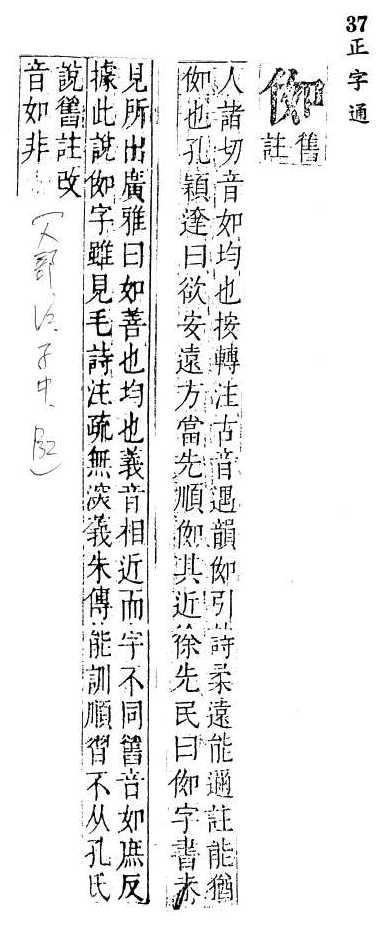 37正字通
伽舊
註
人諸切音如均也按轉注古音遇韻伽引詩柔遠能邇註能猶
伽也孔穎達曰欲安遠方當先順伽其近徐先民曰伽字書未
見所出廣雅曰如善也均也義音相近而字不同舊音如庶反
據此說伽字雖見毛詩注疏無深義朱傳能訓順習不从孔氏
說舊註改
音如非